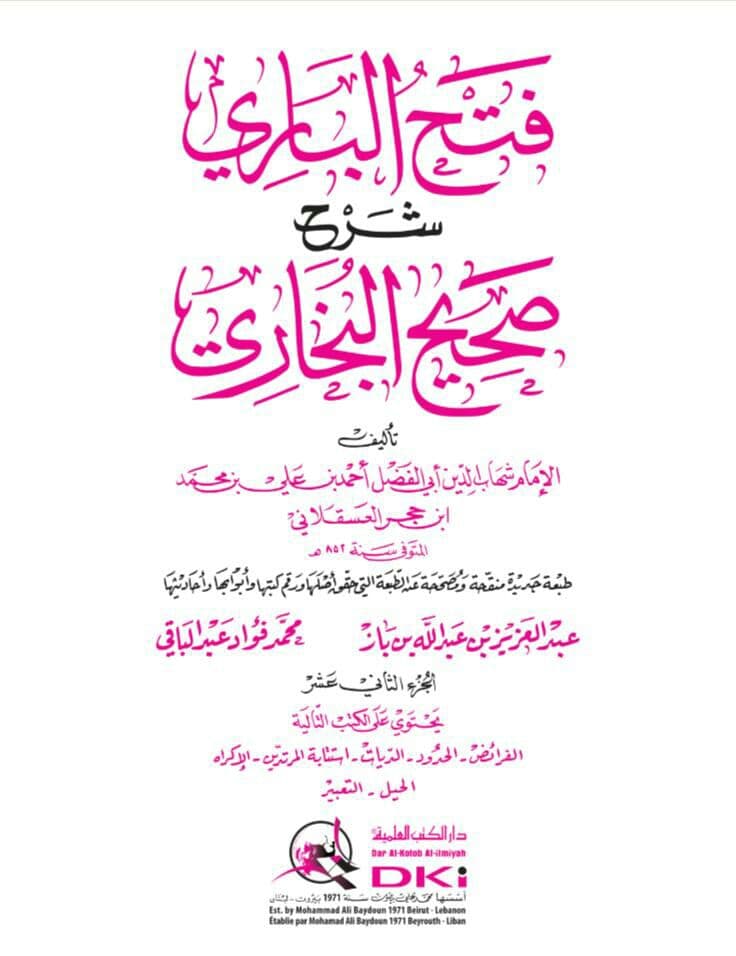 فتح الباري
شرح
صحيح البخاري
تأليف
الإمام شهاب الدين أبي الفضل أحمد بن علي بن محمد
ابن حجر العسقلاني
المتوفى سنة ٨٥٢ هـ
طبعة جديدة منقحة ومصححة عن الطبعة التي حقق أصلها ورقم كتبها وأبوابها وأحاديثها
عبد العزيز بن عبد الله بن باز محمد فؤاد عبد الباقي
الجزء الثاني عشر
يحتوي على الكتب التالية
الفرائض - الحدود - الديات - استتابة المرتدين - الإكراه
الحيل - التعبير
دار الكتب العلمية
Dar Al-Kotob Al-ilmiyah
DKi
أسسها محمد علي بيضون سنة 1971 بيروت - لبنان
Est. by Mohammad Ali Baydoun 1971 Beirut - Lebanon
Établie par Mohamad Ali Baydoun 1971 Beyrouth - Liban